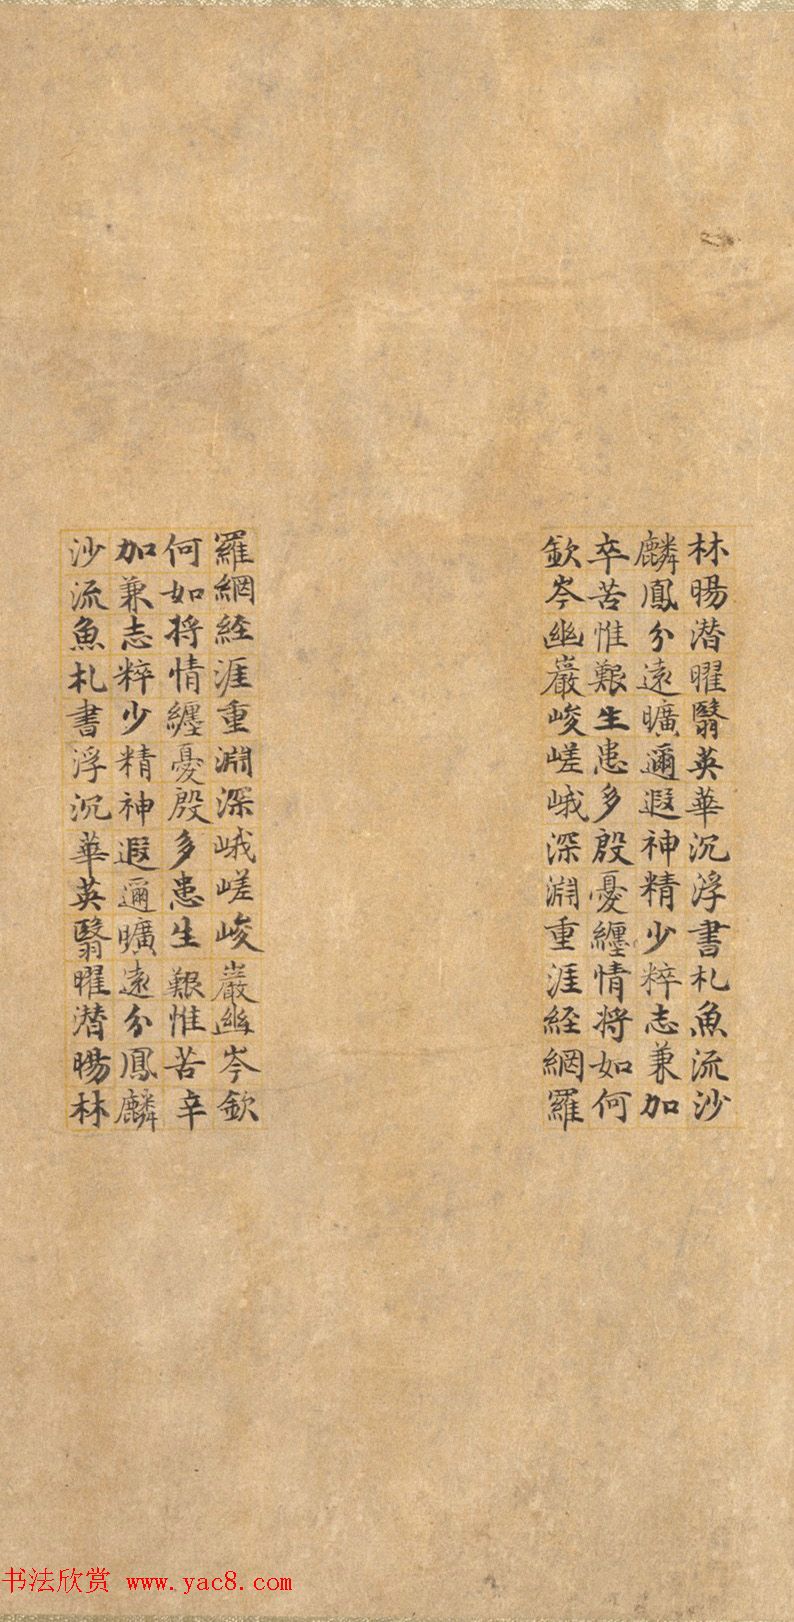 林暘潜曜翳英華沉浮書札魚流沙
麟鳳分遠曠邇遐神精少粹志兼加
卒苦惟艱生患多殷憂纏情将如何
欽岑幽巖峻嵯峨深淵重涯経網羅
羅網経涯重淵深峨嵯峻巖幽岑欽
何如将情纏憂殷多患生艱惟苦辛
加兼志粹少精神遐邇曠遠分鳳麟
沙流魚札書浮沉華英翳曜潜暘林
书法欣赏 www.yac8.com